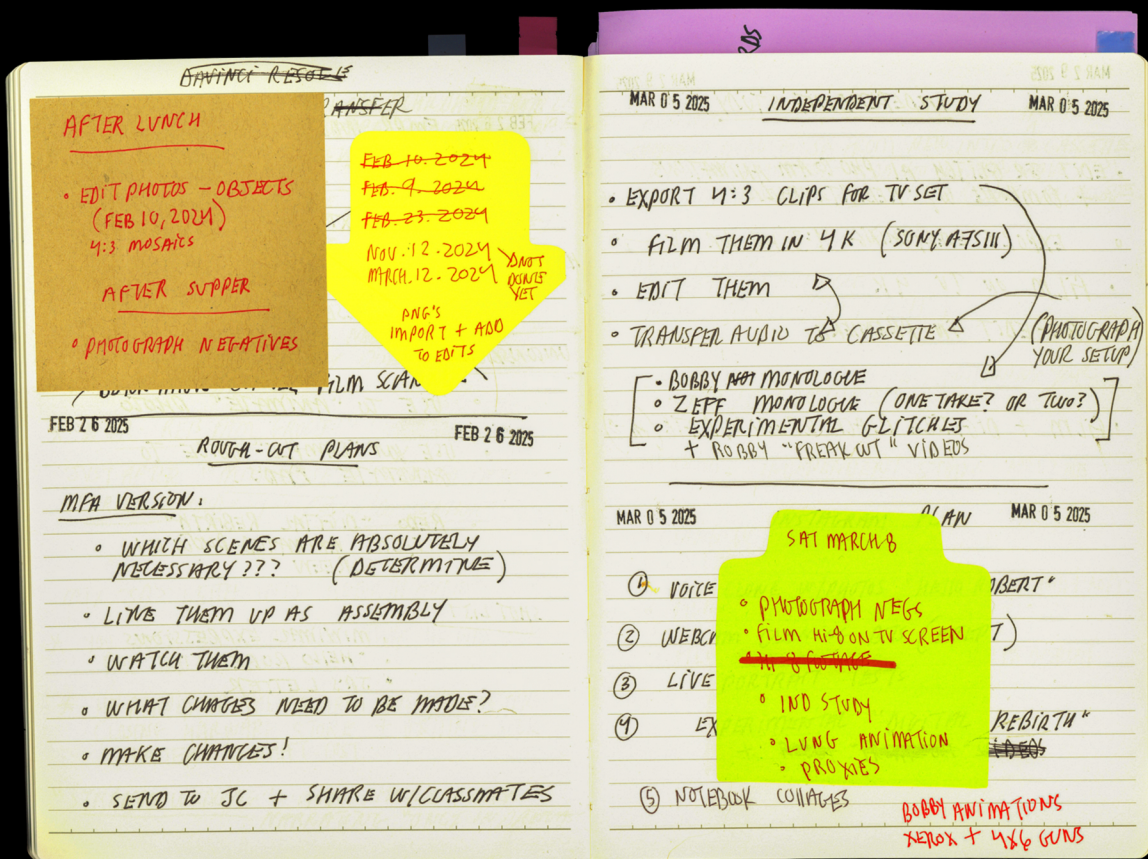 DAVINCI RESOLVE
AFTER LUNCH
• EDIT PHOTOS – OBJECTS
(FEB 10, 2024)
4:3 MOSAICS
AFTER SUPPER
• PHOTOGRAPH NEGATIVES
FEB. 10. 2024
FEB. 9. 2024
FEB. 23. 2024
NOV. 12. 2024
MARCH. 12. 2024
NOT
DONE
YET
PNG'S
IMPORT + ADD
TO EDITS
FILM
FEB 26 2025
FEB 26 2025
ROUGH-CUT PLANS
MFA VERSION:
• WHICH SCENES ARE ABSOLUTELY
NECESSARY??? (DETERMINE)
• LINE THEM UP AS ASSEMBLY
• WATCH THEM
• WHAT CHAGES NEED TO BE MADE?
• MAKE CHANGES!
• SEND TO JC + SHARE W/CLASSMATES
MAR 05 2025 INDEPENDENT STUDY MAR 05 2025
• EXPORT 4:3 CLIPS FOR TV SET
• FILM THEM IN 4K (SONY A7SIII)
• EDIT THEM
• TRANSFER AUDIO TO CASSETTE
(PHOTOGRAPH
YOUR SETUP)
• BOBBY NOT MONOLOGUE
• ZEFF MONOLOGUE (ONE TAKE? OR TWO?)
• EXPERIMENTAL GLITCHES
+ ROBBY "FREAK OUT" VIDEOS
MAR 05 2025 PLAN MAR 05 2025
① VOICE
② WEBC
③ LIVE
④ EX REBIRTH"
⑤ NOTEBOOK COLLAGES
SAT MARCH 8
• PHOTOGRAPH NEGS
• FILM Hi-8 ON TV SCREEN
• Hi-8 FOOTAGE
• IND STUDY
• LUNG ANIMATION
• PROXIES
BOBBY ANIMATIONS
XEROX + 4X6 GUNS